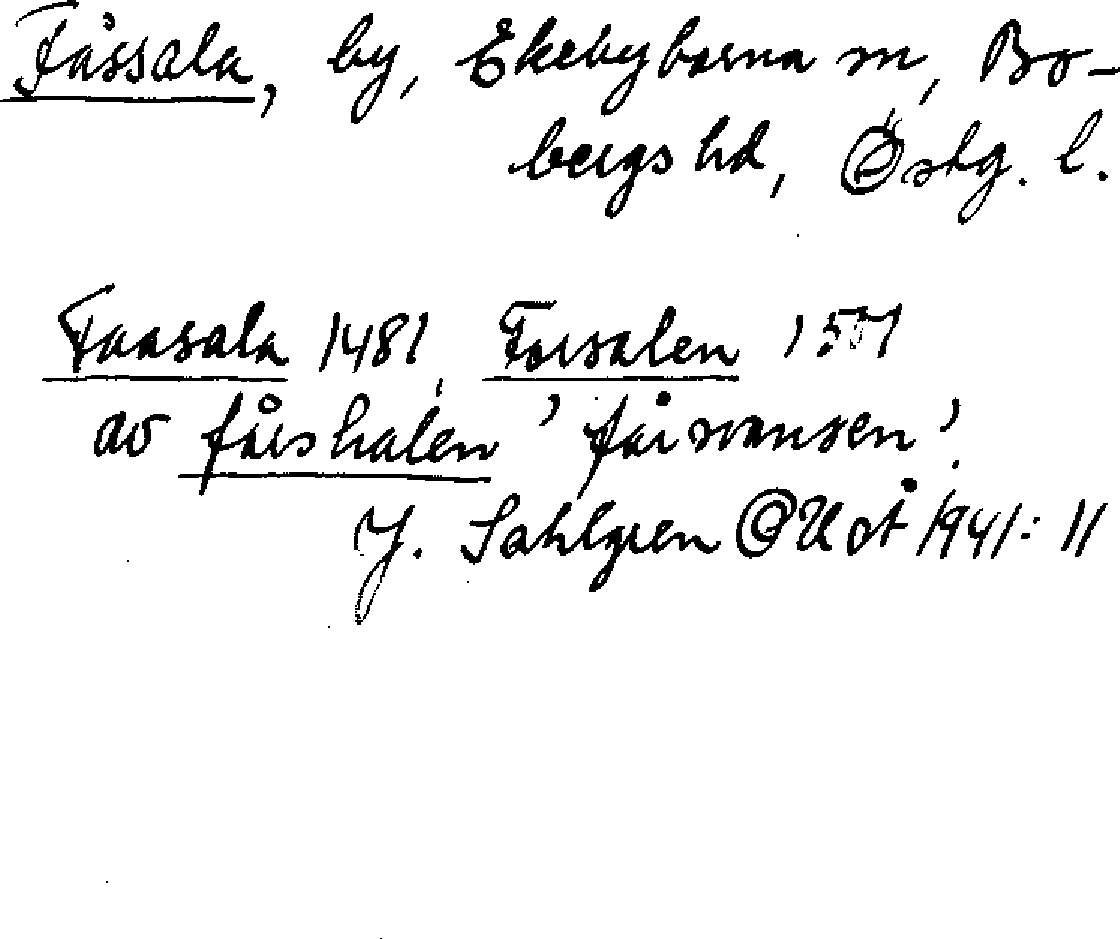 Fåssala, by, Ekebyborna sn, Bo-
bergs hd, Östg. l.
Faasala 1481, Forsalen
av fårshalen 'fårsvansen'.
J. Sahlgren OUÅ 1941: 11